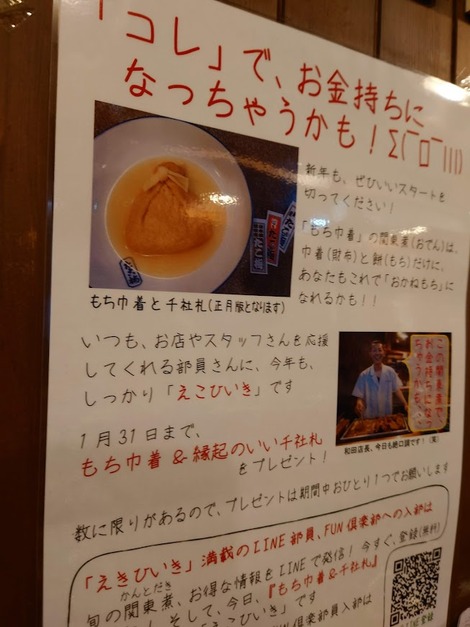 「コレ」で、お金持ちに
なっちゃうかも！Σ(￣ロ￣|||)
新年も、ぜひいいスタートを
切ってください！
「もち巾着」の関東煮(おでん)は、
巾着(財布)と餅(もち)だけに、
あなたもこれで「おかねもち」に
なれるかも！！
たこ梅
もち巾着と千社札(正月版となります)
いつも、お店やスタッフさんを応援
してくれる部員さんに、今年も、
しっかり「えこひいき」です
この関東煮で
お金持ちになっ
ちゃうかも！
和田店長、今日も絶口調です！(笑)
1月31日まで、
もち巾着 & 縁起のいい千社札
をプレゼント！
数に限りがあるので、プレゼントは期間中おひとり1つでお願いします
「えきひいき」満載のLINE部員、FUN倶楽部への入部は
かんとだき
旬の関東煮、お得な情報をLINEで発信！今すぐ、登録(無料)
そして、今日、『もち巾着&千社札』
「えこひいき」です
FUN倶楽部入部は
LINE登録